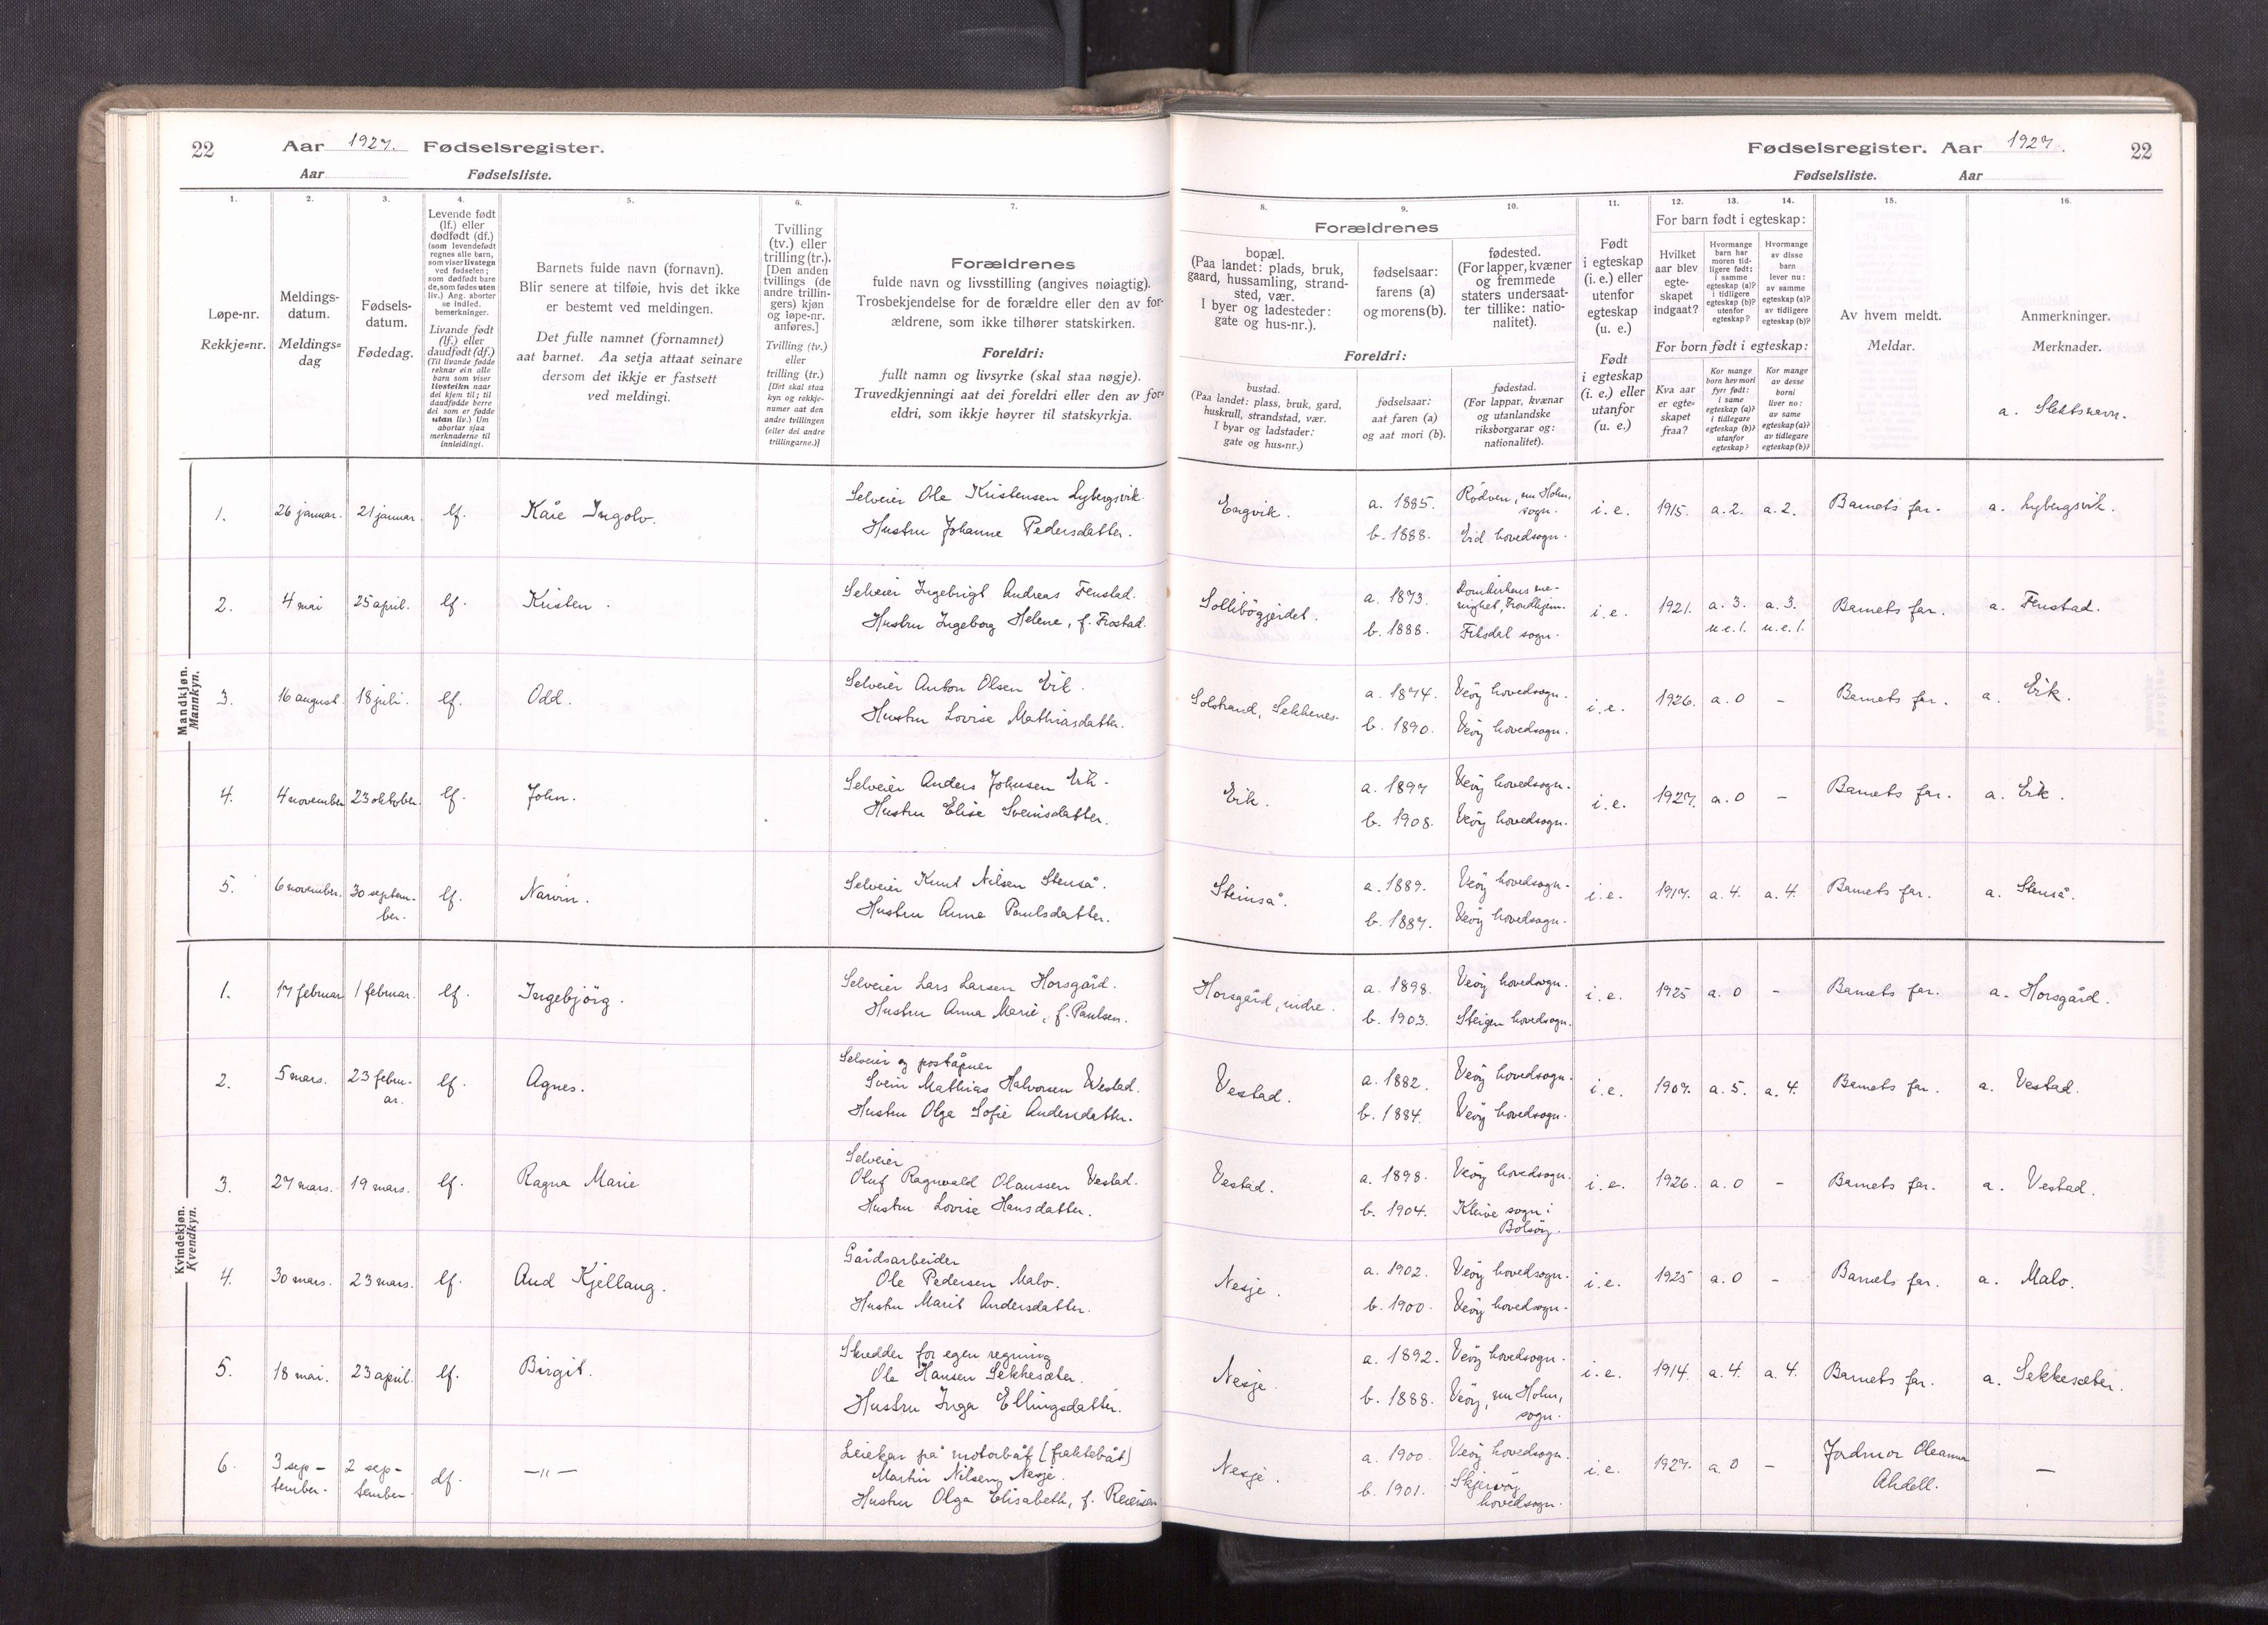 22 Aar 1927. Fødselsregister.
Aar Fødselsliste.
Fødselsregister. Aar 1927. 22
Fødselsliste. Aar
1.
Løpe-nr.
Rekkje=nr.
2.
Meldings-
datum.
Meldings=
dag
3.
Fødsels-
datum.
Fødedag.
4.
Levende født
(lf.) eller
dødfødt (df.)
(som levendefødt
regnes alle barn,
som viser livstegn
ved fødselen;
som dødfødt bare
de, som fødes uten
liv.) Ang. aborter
se indled.
bemerkninger.
Livande født
(lf.) eller
daudfødt (df.)
(Til livande fødde
reknar ein alle
barn som viser
livsteikn naar
dei kjem til; til
daudfødde berre
dei som er fødde
utan liv.) Um
abortar sjaa
merknaderne til
innleidingi.
5.
Barnets fulde navn (fornavn).
Blir senere at tilføie, hvis det ikke
er bestemt ved meldingen.
Det fulle namnet (fornamnet)
aat barnet. Aa setja attaat seinare
dersom det ikkje er fastsett
ved meldingi.
6.
Tvilling
(tv.) eller
trilling (tr.).
[Den anden
tvillings (de
andre trillin-
gers) kjøn
og løpe-nr.
anføres.]
Tvilling (tv.)
eller
trilling (tr.)
[Det skal staa
kyn og rekkje-
numer aat den
andre tvillingen
(eller dei andre
trillingarne.)]
7.
Forældrenes
fulde navn og livsstilling (angives nøiagtig).
Trosbekjendelse for de forældre eller den av for-
ældrene, som ikke tilhører statskirken.
Foreldri:
fullt namn og livsyrke (skal staa nøgje).
Truvedkjenningi aat dei foreldri eller den av for=
eldri, som ikkje høyrer til statskyrkja.
Forældrenes
8.
bopæl.
(Paa landet: plads, bruk,
gaard, hussamling, strand-
sted, vær.
I byer og ladesteder:
gate og hus-nr.).
9.
fødselsaar:
farens (a)
og morens (b).
10.
fødested.
(For lapper, kvæner
og fremmede
staters undersaat-
ter tillike: natio-
nalitet).
Foreldri:
bustad.
(Paa landet: plass, bruk, gard,
huskrull, strandstad, vær.
I byar og ladstader:
gate og hus=nr.)
fødselsaar:
aat faren (a)
og aat mori (b).
fødestad.
(For lappar, kvænar
og utanlandske
riksborgarar og:
nationalitet).
11.
Født
i egteskap
(i. e.) eller
utenfor
egteskap
(u. e.)
Født
i egteskap
(i. e.) eller
utanfor
(u. e.)
For barn født i egteskap:
12.
Hvilket
aar blev
egte-
skapet
indgaat?
13.
Hvormange
barn har
moren tid-
ligere født:
i samme
egteskap (a)?
i tidligere
egteskap (b)?
utenfor
egteskap?
14.
Hvormange
av disse
barn
lever nu:
av samme
egteskap (a)?
av tidligere
egteskap (b)?
For born født i egteskap:
Kva aar
er egte=
skapet
fraa?
Kor mange
born hev mori
fyrr født:
i same
egteskap (a)?
i tidlegare
egteskap (b)?
utanfor
egteskap?
Kor mange
av desse
borni
liver no:
av same
egteskap (a)?
av tidlegare
egteskap (b)?
15.
Av hvem meldt.
Meldar.
16.
Anmerkninger.
Merknader.
a. Slektsnavn.
Mandkjøn.
Mannkyn.
1. 26 januar. 21 januar. lf. Kåre Ingolv. Selveier Ole Kristensen Lybergsvik.
Hustru Johanne Pedersdatter.
Engvik. a. 1885. b. 1888. Rödven, nu Holm,
sogn.
Eid hovedsogn. i. e. 1915. a. 2. a. 2. Barnets far. a. Lybergsvik.
2. 4 mai 25 april. lf. Kristen. Selveier Ingebrigt Andreas Fenstad.
Hustru Ingeborg Helene, f. Frostad.
Sollibögjerdet. a. 1873. b. 1888. Domkirkens me-
nighet, Trondhjem.
Fiksdal sogn. i. e. 1921. a. 3. u. e. 1. a. 3. u. e. 1. Barnets far. a. Fenstad.
3. 16 august. 18 juli. lf. Odd. Selveier Anton Olsen Eik.
Hustru Lovise Mathiasdatter.
Solstrand, Sekkenes. a. 1874. b. 1890. Veöy hovedsogn.
Veöy hovedsogn. i. e. 1926. a. 0 - Barnets far. a. Eik.
4. 4 november 23 oktober. lf. John. Selveier Anders Johnsen Eik.
Hustru Elise Sveinsdatter.
Eik. a. 1897 b. 1908. Veöy hovedsogn.
Veöy hovedsogn. i. e. 1927. a. 0 - Barnets far. a. Eik.
5. 6 november. 30 septem-
ber. lf. Narvin. Selveier Knut Nilsen Stenså.
Hustru Anne Paulsdatter.
Steinså. a. 1889. b. 1887. Veöy hovedsogn.
Veöy hovedsogn. i. e. 1917. a. 4. a. 4. Barnets far. a. Stenså.
Kvindekjøn.
Kvendkyn.
1. 17 februar 1 februar. lf. Ingebjörg. Selveier Lars Larsen Horsgård.
Hustru Anna Marie, f. Paulsen.
Horsgård, indre. a. 1898. b. 1903. Veöy hovedsogn.
Steigen hovedsogn. i. e. 1925 a. 0 - Barnets far. a. Horsgård.
2. 5 mars. 23 febru-
ar. lf. Agnes. Selveier og poståpner
Svein Mathias Halvorsen Vestad.
Hustru Olga Sofie Andersdatter.
Vestad. a. 1882. b. 1884. Veöy hovedsogn.
Veöy hovedsogn. i. e. 1907. a. 5. a. 4. Barnets far. a. Vestad.
3. 27 mars. 19 mars. lf. Ragna Marie Selveier
Oluf Ragnvald Olaussen Vestad.
Hustru Lovise Hansdatter.
Vestad. a. 1898. b. 1904. Veöy hovedsogn.
Kleive sogn i
Bolsöy. i. e. 1926. a. 0 - Barnets far. a. Vestad.
4. 30 mars. 23 mars. lf. Aud Kjellaug. Gårdsarbeider
Ole Pedersen Malo.
Hustru Marit Andersdatter.
Nesje. a. 1902. b. 1900. Veöy hovedsogn.
Veöy hovedsogn. i. e. 1925 a. 0 - Barnets far. a. Malo.
5. 18 mai. 23 april. lf. Birgit. Skredder for egen regning
Ole Hansen Sekkesæter.
Hustru Inga Ellingsdatter.
Nesje. a. 1892. b. 1888. Veöy hovedsogn.
Veöy, nu Holm,
sogn. i. e. 1914. a. 4. a. 4. Barnets far. a. Sekkesæter.
6. 3 sep-
tember. 2 sep-
tember df. —"— Leiekar på motorbåt (fraktebåt)
Martin Nilsen Nesje.
Hustru Olga Elisabeth, f. Reiersen
Nesje. a. 1900. b. 1901. Veöy hovedsogn.
Skjervöy
hovedsogn. i. e. 1927. a. 0 - Jordmor Oleanna
—